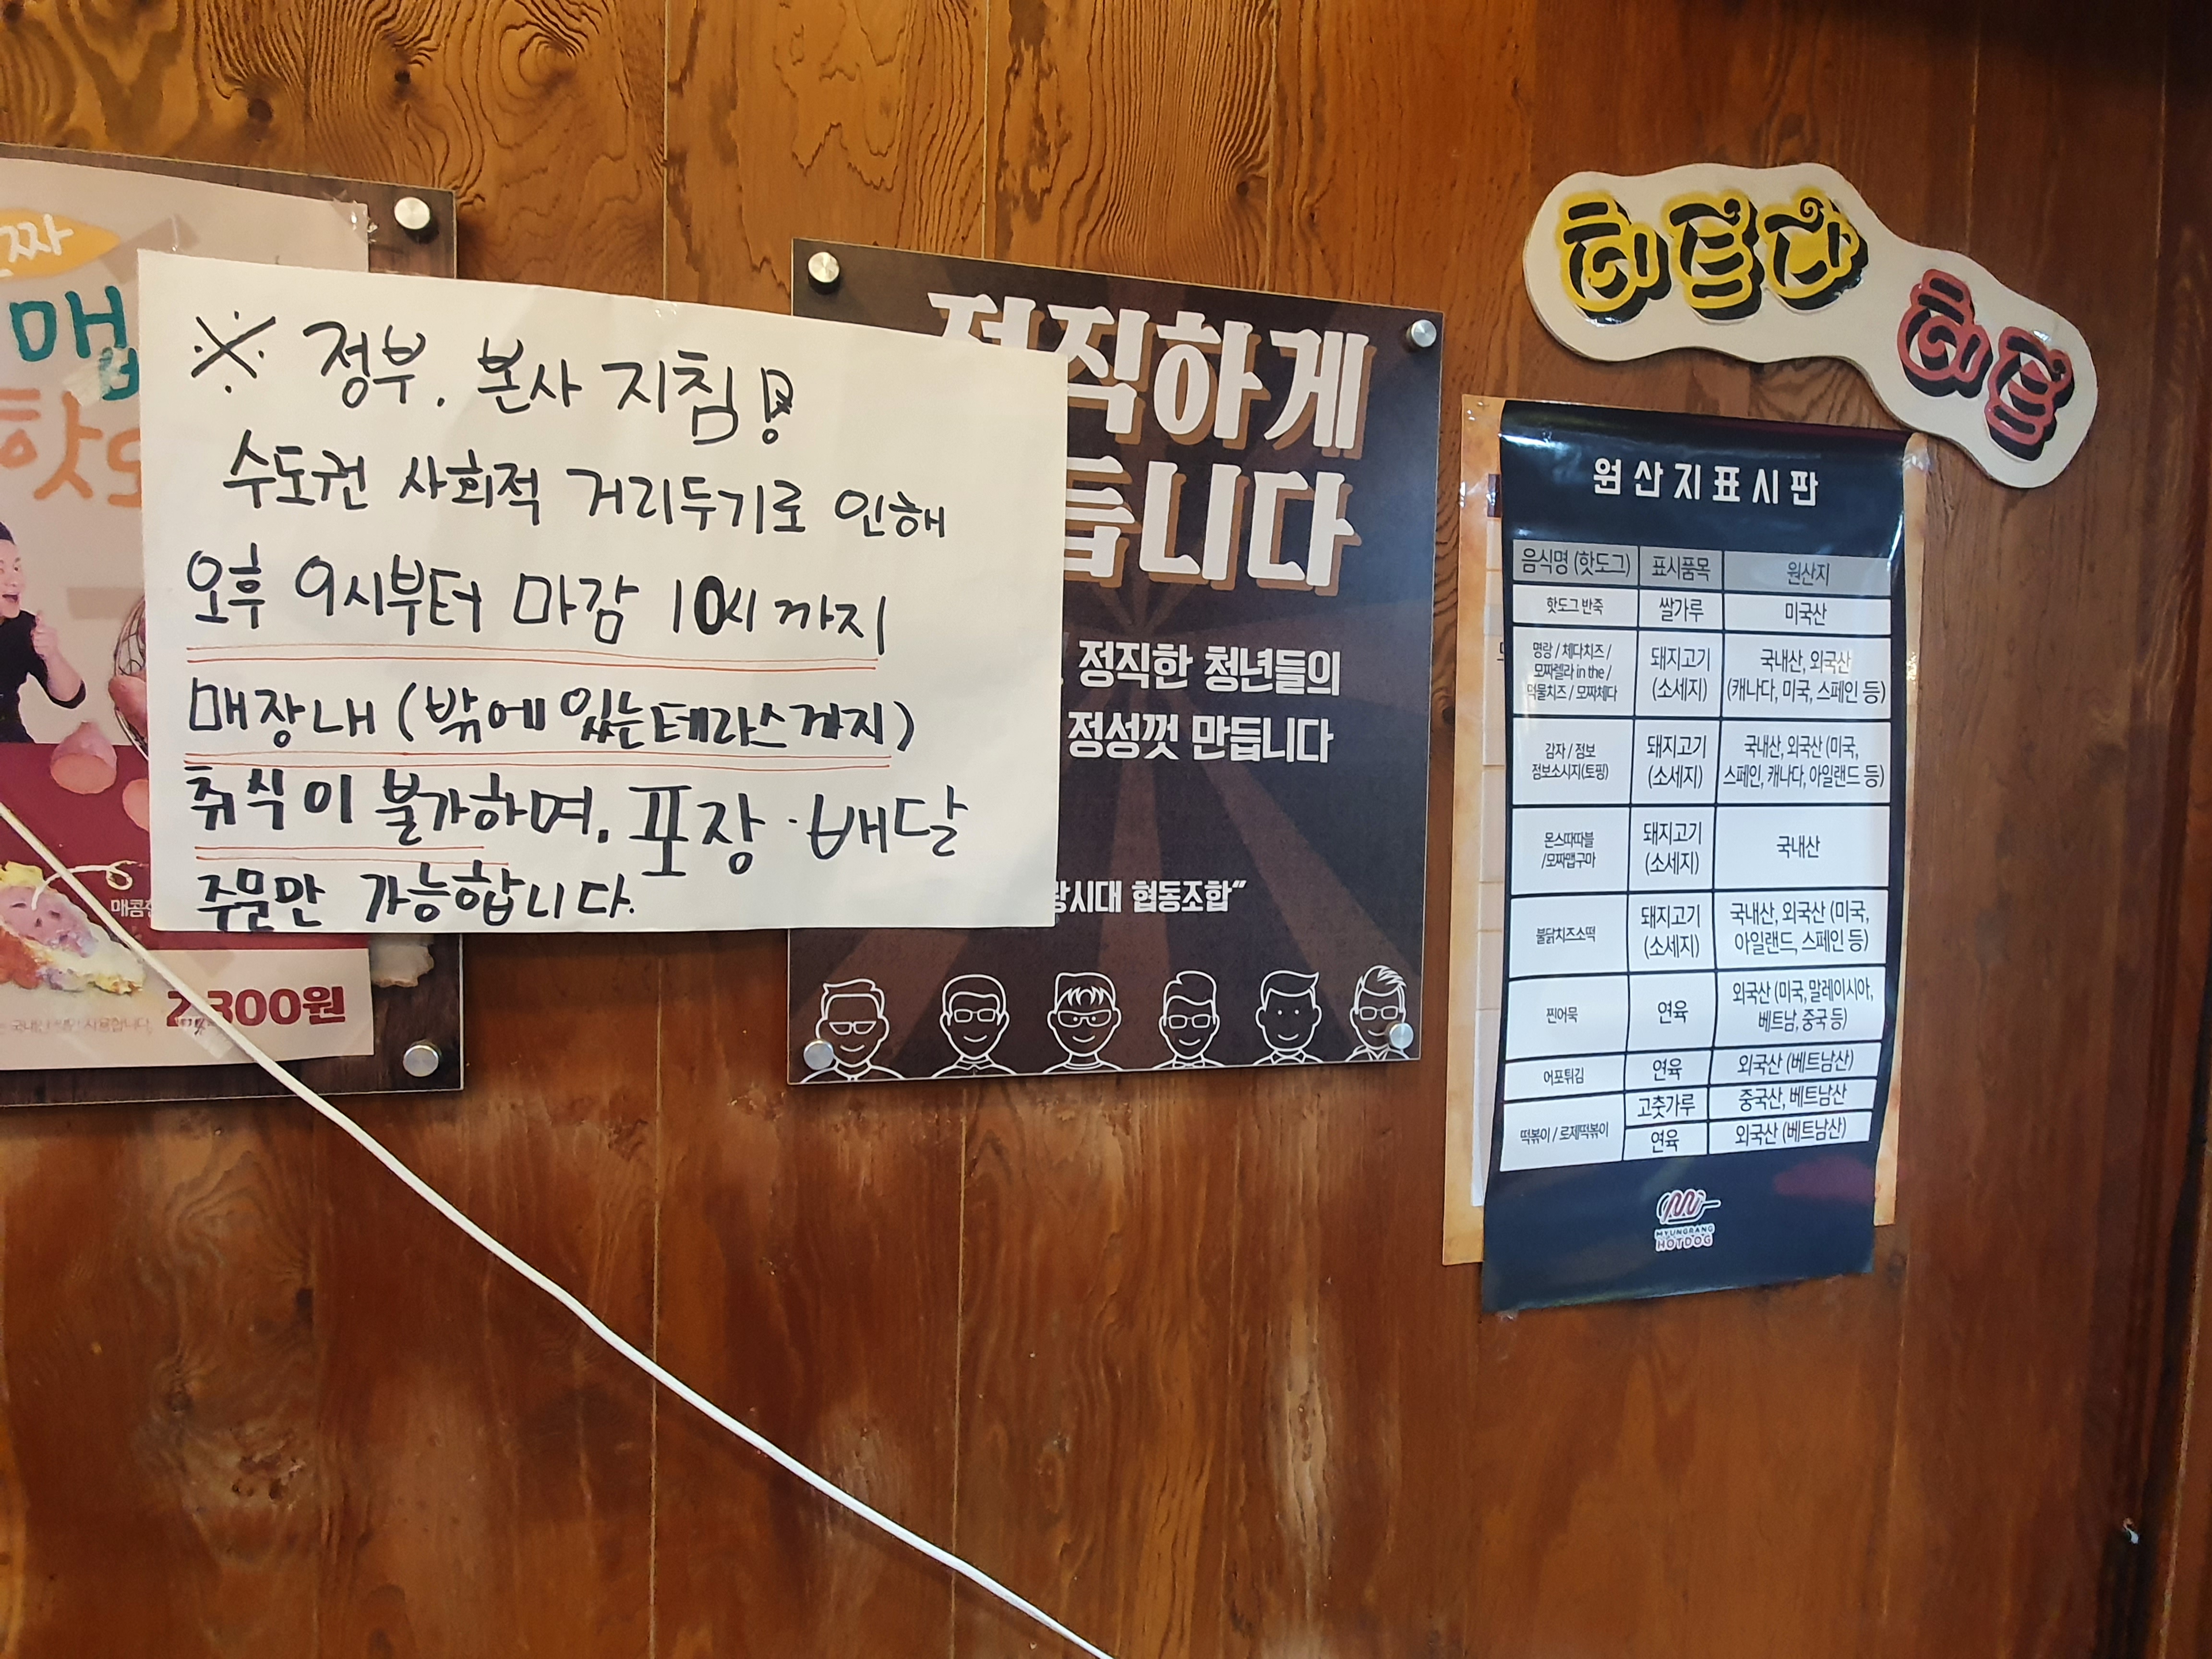 짜
매
핫
매콤
2,300원
※ 정부. 본사 지침!
수도권 사회적 거리두기로 인해
오후 9시부터 마감 10시까지
매장내 (밖에 있는 테라스까지)
취식이 불가하며. 포장·배달
주문만 가능합니다.
정직하게
듭니다
정직한 청년들의
정성껏 만듭니다
시대 협동조합"
원산지표시판
음식명 (핫도그) 표시품목 원산지
핫도그 반죽 쌀가루 미국산
명랑 / 체다치즈 /
모짜렐라 in the /
먹물치즈 / 모짜체다
돼지고기
(소세지)
국내산, 외국산
(캐나다, 미국, 스페인 등)
감자 / 점보
점보소시지(토핑)
돼지고기
(소세지)
국내산, 외국산 (미국,
스페인, 캐나다, 아일랜드 등)
몬스따따블
/모짜맵구마
돼지고기
(소세지)
국내산
불닭치즈소떡
돼지고기
(소세지)
국내산, 외국산 (미국,
아일랜드, 스페인 등)
찐어묵
연육
외국산 (미국, 말레이시아,
베트남, 중국 등)
어포튀김 연육 외국산 (베트남산)
떡볶이 / 로제떡볶이
고춧가루 중국산, 베트남산
연육 외국산 (베트남산)
MYUNGRANG
HOTDOG